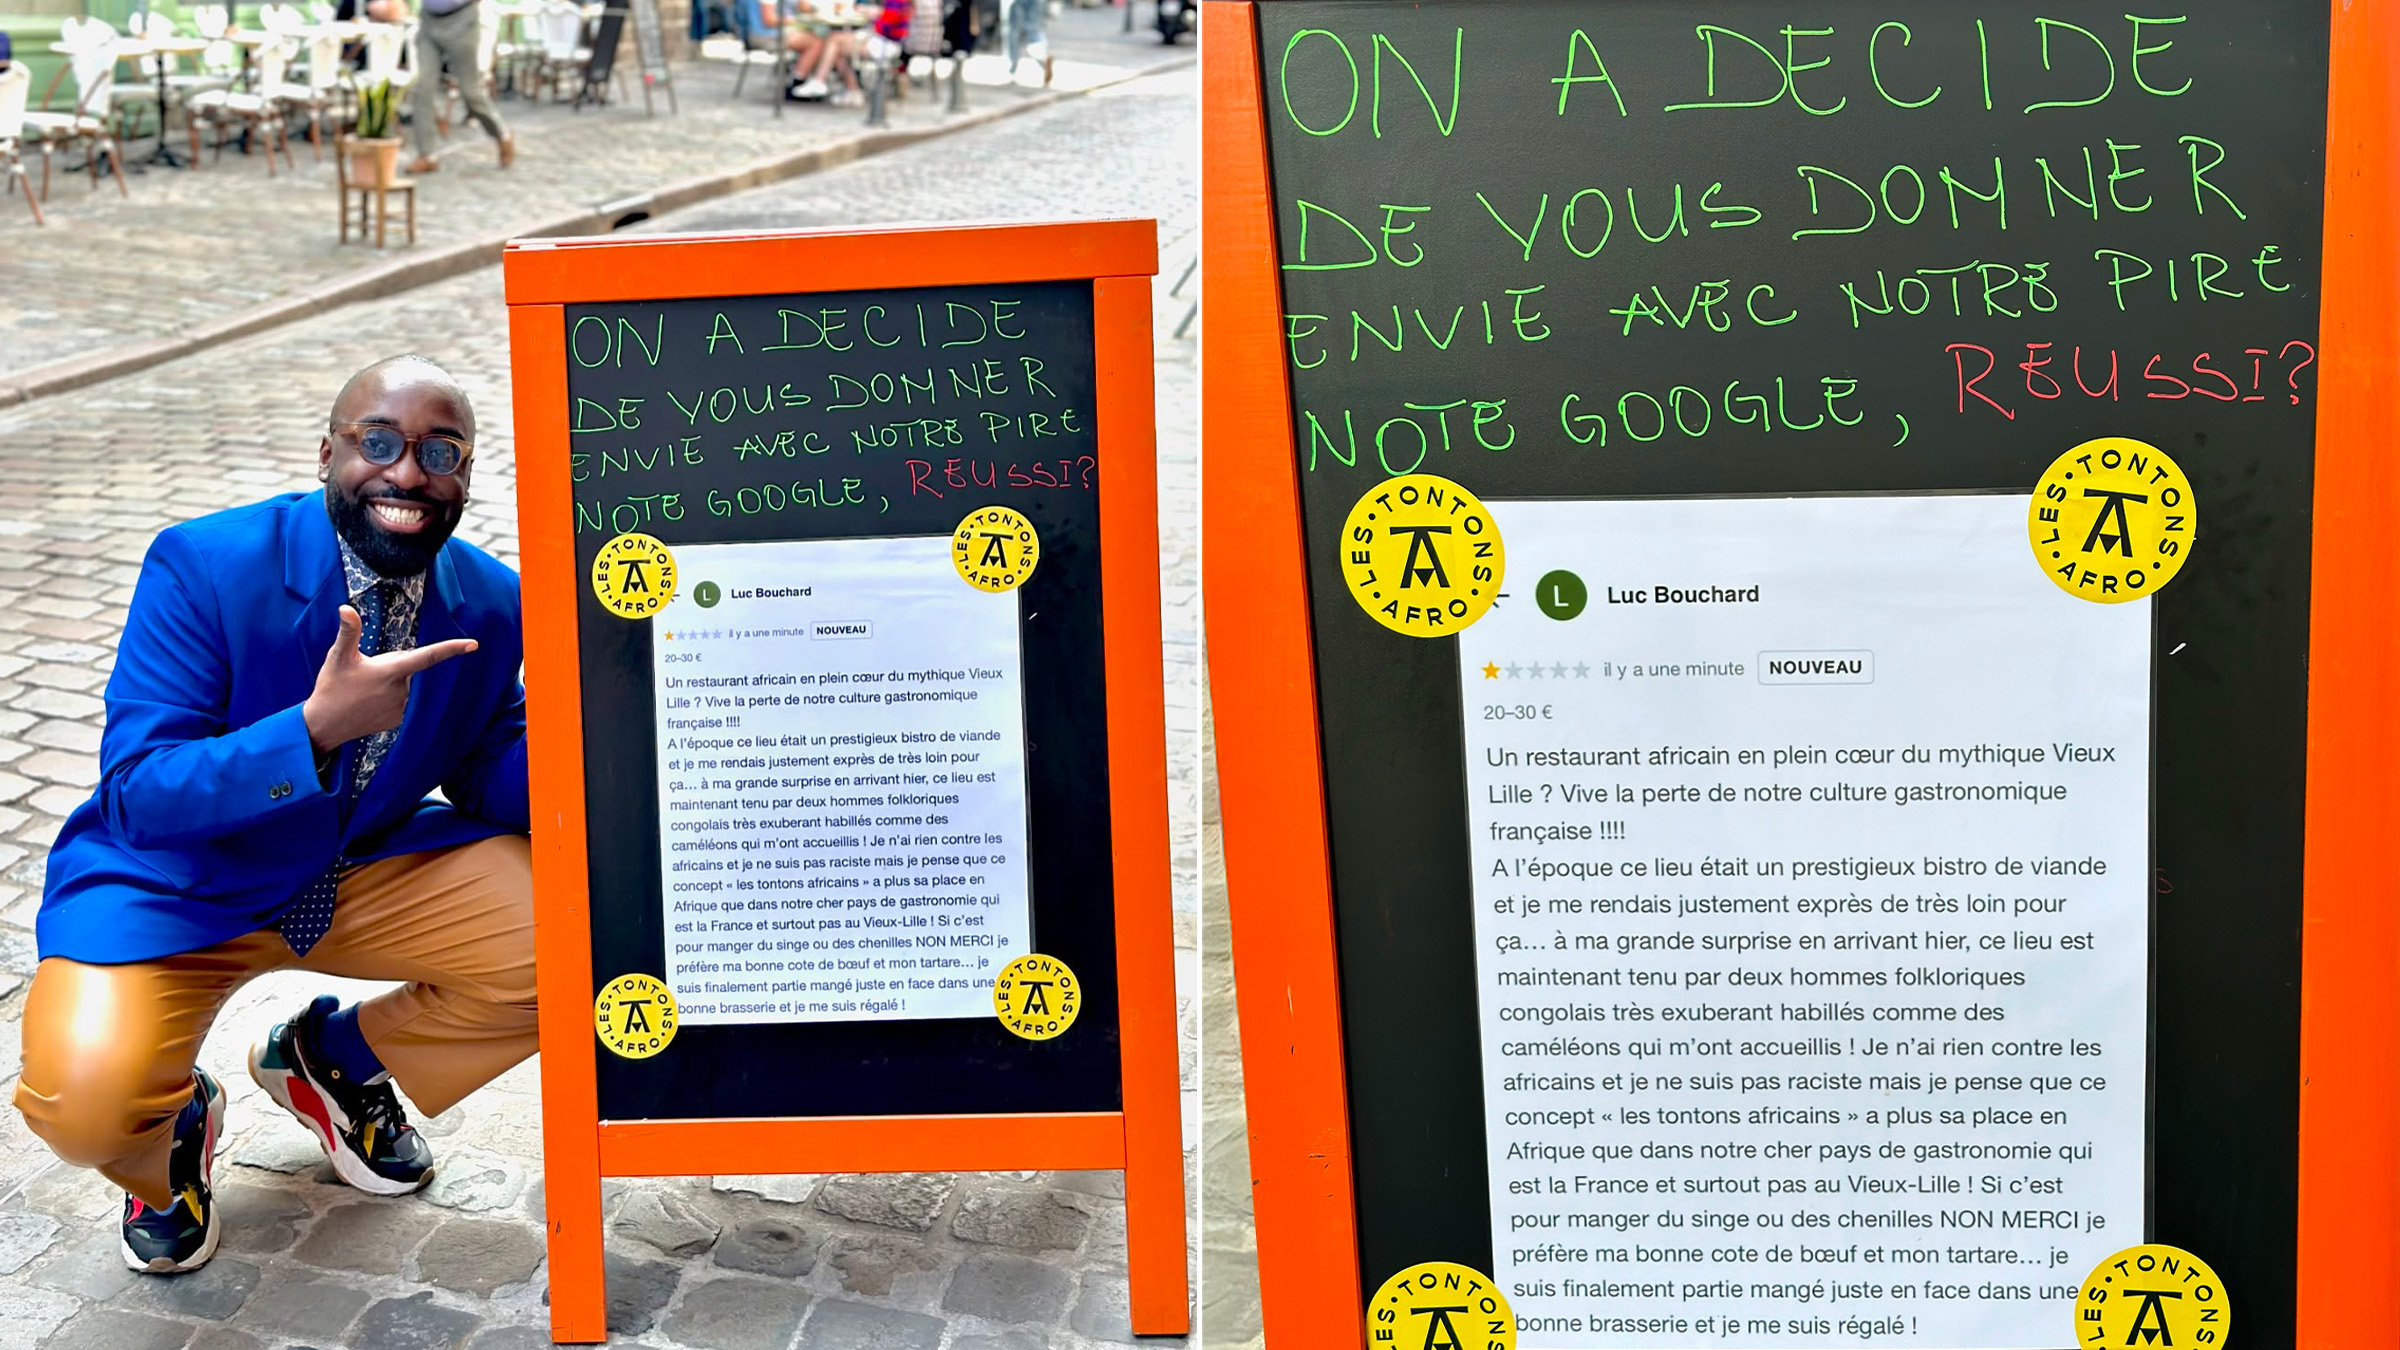 ON A DECIDE
DE VOUS DONNER
ENVIE AVEC NOTRE PIRE
NOTE GOOGLE, REUSSI?
LES • TONTONS • AFRO •
LES • TONTONS • AFRO •
L Luc Bouchard
il y a une minute NOUVEAU
20–30 €
Un restaurant africain en plein cœur du mythique Vieux
Lille ? Vive la perte de notre culture gastronomique
française !!!!
A l'époque ce lieu était un prestigieux bistro de viande
et je me rendais justement exprès de très loin pour
ça… à ma grande surprise en arrivant hier, ce lieu est
maintenant tenu par deux hommes folkloriques
congolais très exuberant habillés comme des
caméléons qui m'ont accueillis ! Je n'ai rien contre les
africains et je ne suis pas raciste mais je pense que ce
concept « les tontons africains » a plus sa place en
Afrique que dans notre cher pays de gastronomie qui
est la France et surtout pas au Vieux-Lille ! Si c'est
pour manger du singe ou des chenilles NON MERCI je
préfère ma bonne cote de bœuf et mon tartare… je
suis finalement partie mangé juste en face dans une
bonne brasserie et je me suis régalé !
LES • TONTONS • AFRO •
LES • TONTONS • AFRO •
ON A DECIDE
DE VOUS DONNER
ENVIE AVEC NOTRE PIRE
NOTE GOOGLE, REUSSI?
LES • TONTONS • AFRO •
LES • TONTONS • AFRO •
L Luc Bouchard
il y a une minute NOUVEAU
20–30 €
Un restaurant africain en plein cœur du mythique Vieux
Lille ? Vive la perte de notre culture gastronomique
française !!!!
A l'époque ce lieu était un prestigieux bistro de viande
et je me rendais justement exprès de très loin pour
ça… à ma grande surprise en arrivant hier, ce lieu est
maintenant tenu par deux hommes folkloriques
congolais très exuberant habillés comme des
caméléons qui m'ont accueillis ! Je n'ai rien contre les
africains et je ne suis pas raciste mais je pense que ce
concept « les tontons africains » a plus sa place en
Afrique que dans notre cher pays de gastronomie qui
est la France et surtout pas au Vieux-Lille ! Si c'est
pour manger du singe ou des chenilles NON MERCI je
préfère ma bonne cote de bœuf et mon tartare… je
suis finalement partie mangé juste en face dans une
bonne brasserie et je me suis régalé !
LES • TONTONS
LES • TONTONS